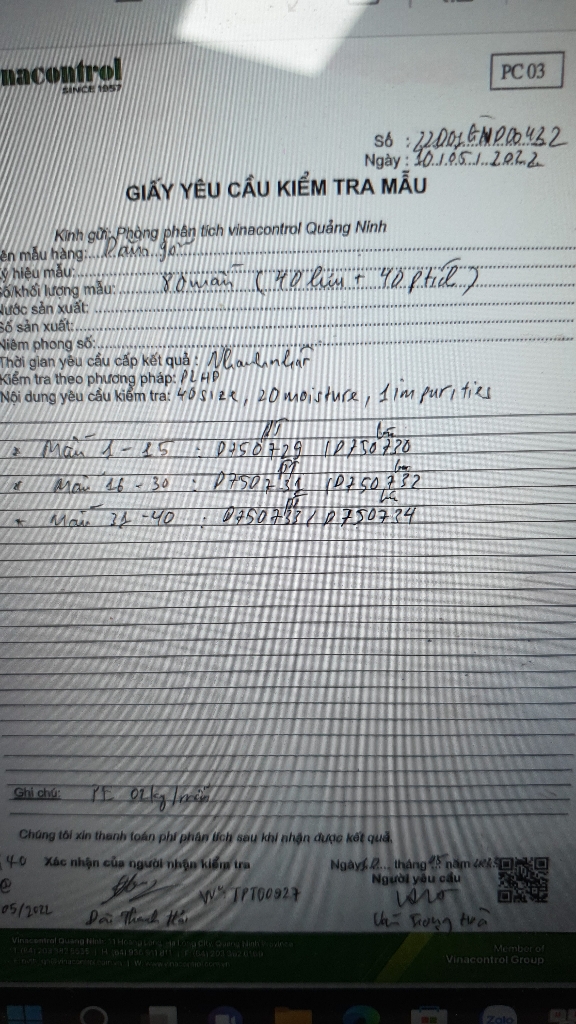 nacontrol
SINCE 1957
PC 03
Số : 22D01GND00432
Ngày : 10/05/2022
GIẤY YÊU CẦU KIỂM TRA MẪU
Kính gửi: Phòng phân tích vinacontrol Quảng Ninh
ên mẫu hàng: Dăm gỗ
ý hiệu mẫu:
Số/khối lượng mẫu: 80 mẫu (40 lưu + 40 ptích)
Nước sản xuất:
Số sản xuất:
Niêm phong số:
Thời gian yêu cầu cấp kết quả : Nhanh nhất
Kiểm tra theo phương pháp: PLHD
Nội dung yêu cầu kiểm tra: 40 size, 20 moisture, 1 impurities
PT lưu
* Mẫu 1 - 15 : D750729 / D750730
PT lưu
* Mẫu 16 - 30 : D750731 / D750732
PT lưu
* Mẫu 31 - 40 : D750733 / D750734
Ghi chú: PE 02kg/mẫu
Chúng tôi xin thanh toán phí phân tích sau khi nhận được kết quả.
40 Xác nhận của người nhận kiểm tra
Ngày 10 tháng 05 năm
Người yêu cầu
@
05/2022
TPT00927
Thanh
Trọng Hoà
Vinacontrol Quang Ninh
Member of
Vinacontrol Group
Zalo